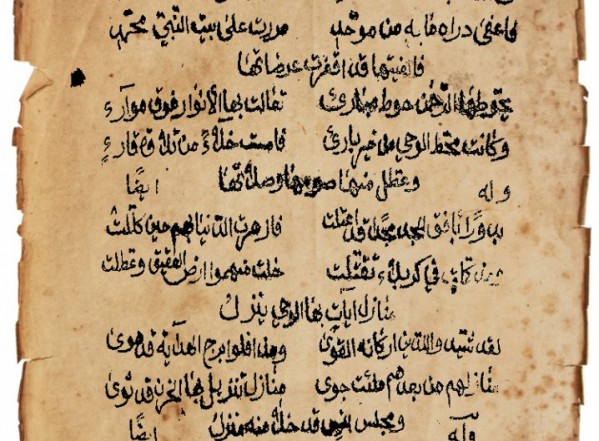 مررت على بيت النبي محتم
فالفيتها قد اقفرت عرضاتها
يحوطها الرحمن حوط مبارئ تقالت بها الأنوار فوق موآرء
وكانت محط الوحي من خير بارئ فامست خلاء من تلاوة قارئ
وله وعطل منها صومها وصلاتها ايضا
بدورا بافق المجد مجدا قد اعتلت فازهرت الدنيا بهم حين كللت
في كربلاء تقتلت خلت منهموا ارض العقيق وعطلت
منازل ايات بها الوحي ينزل
لقد شيد والدين اركانه القوى ومذ افلوا برج الهداية قد هوى
منازلهم من بعدهم ملئت جوى منازل تنزيل بها الحزن قد ثوى
وله ومجلس قد خلا منه منزل ايضا